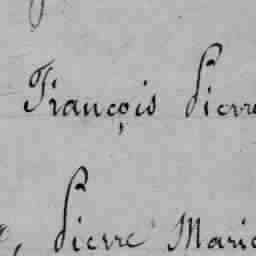 François Pierre
Pierre Marie